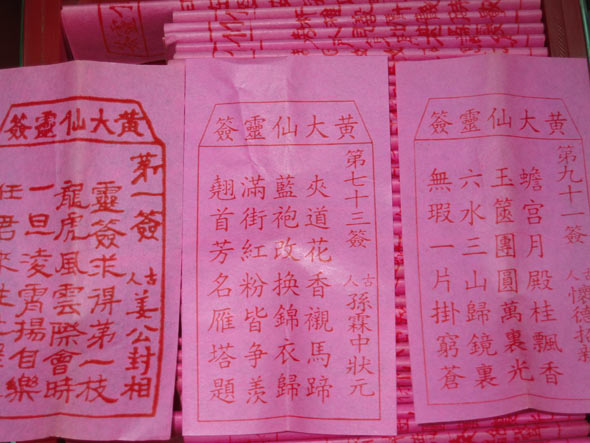 黃大仙靈簽
第一簽
古人 姜公封相
靈簽求得第一枝
龍虎風雲際會時
一旦凌霄揚自樂
任君來
黃大仙靈簽
第七十三簽
古人 孫霖中狀元
夾道花香襯馬蹄
藍袍改换錦衣歸
滿街紅粉皆争羨
翹首芳名雁塔題
黃大仙靈簽
第九十一簽
古人 懷德招親
蟾宮月殿桂飄香
玉篋團圓萬裏光
六水三山歸鏡裏
無瑕一片掛窮蒼